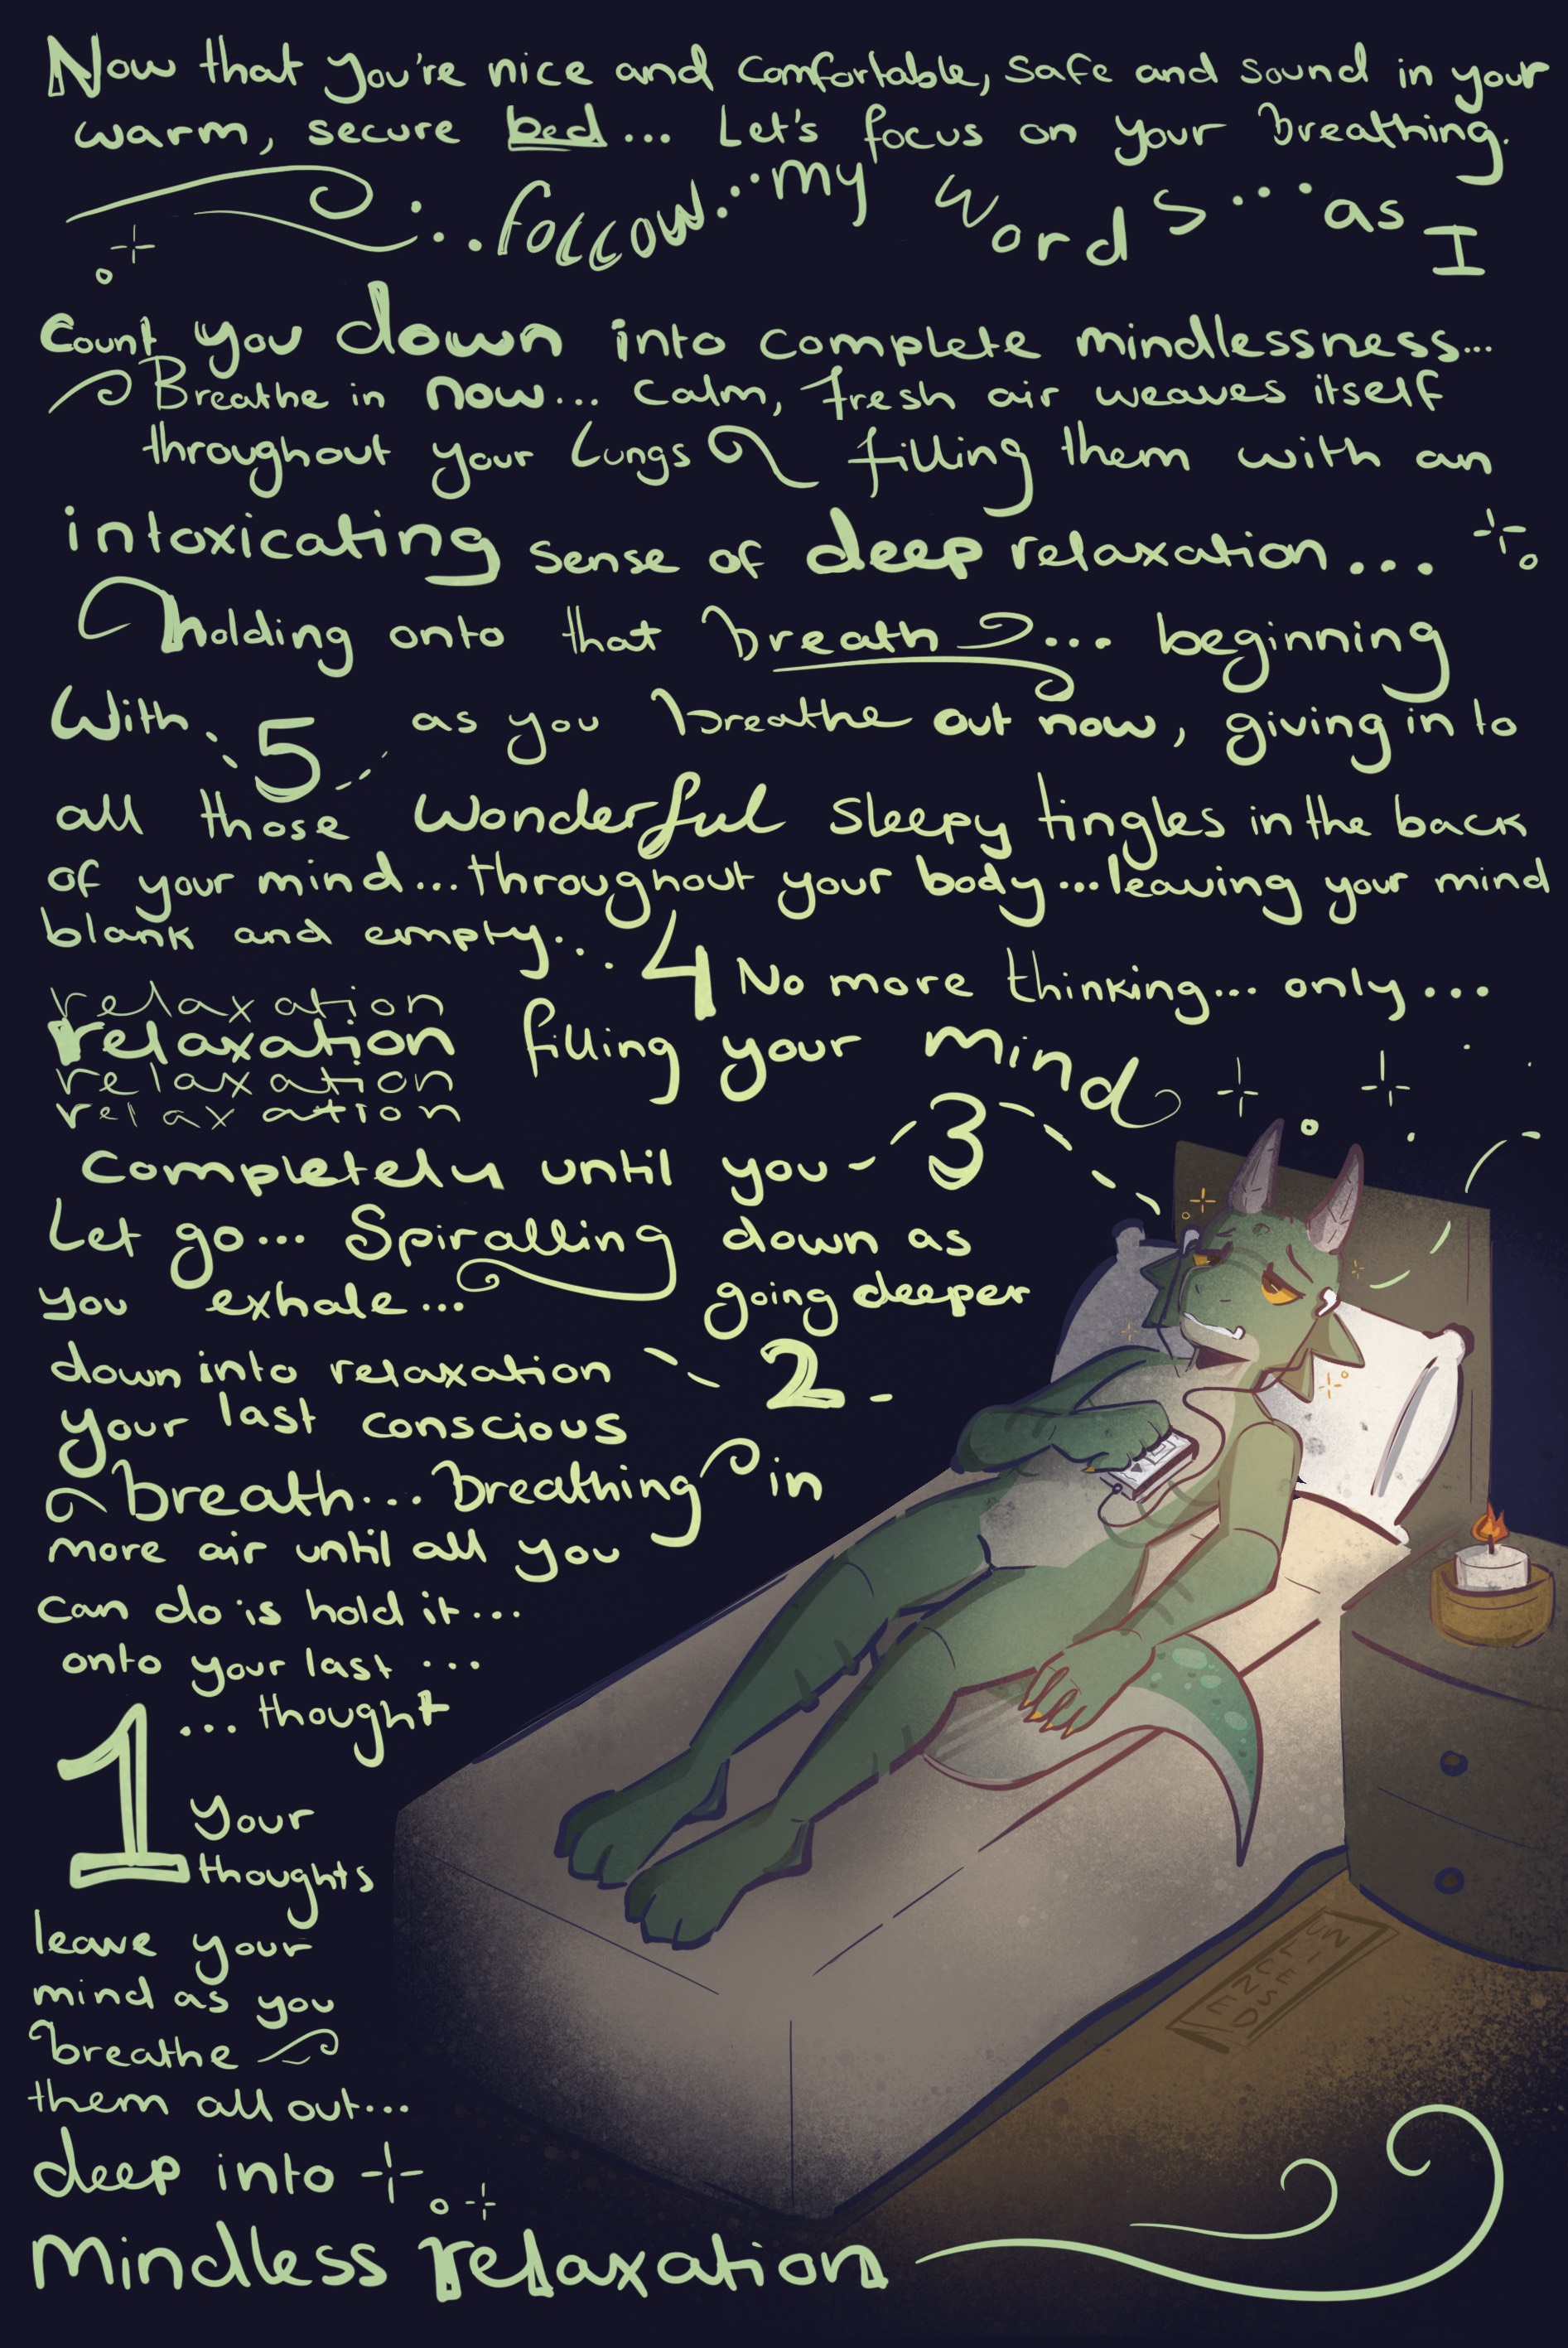 Now that you're nice and comfortable, safe and sound in your
warm, secure bed... Let's focus on your breathing.
...follow...my words...as I
Count you down into complete mindlessness...
Breathe in now... calm, fresh air weaves itself
throughout your lungs filling them with an
intoxicating sense of deep relaxation...
holding onto that breath... beginning
With 5 as you breathe out now, giving in to
all those wonderful sleepy tingles in the back
of your mind...throughout your body...leaving your mind
blank and empty... 4 No more thinking... only...
relaxation
relaxation filling your mind
relaxation
relaxation
Completely until you 3
Let go... Spiralling down as
you exhale... going deeper
down into relaxation 2
your last conscious
breath... Breathing in
more air until all you
can do is hold it...
onto your last ...
... thought
1 Your
thoughts
leave your
mind as you
breathe
them all out...
deep into
Mindless relaxation
UN
LICENSED